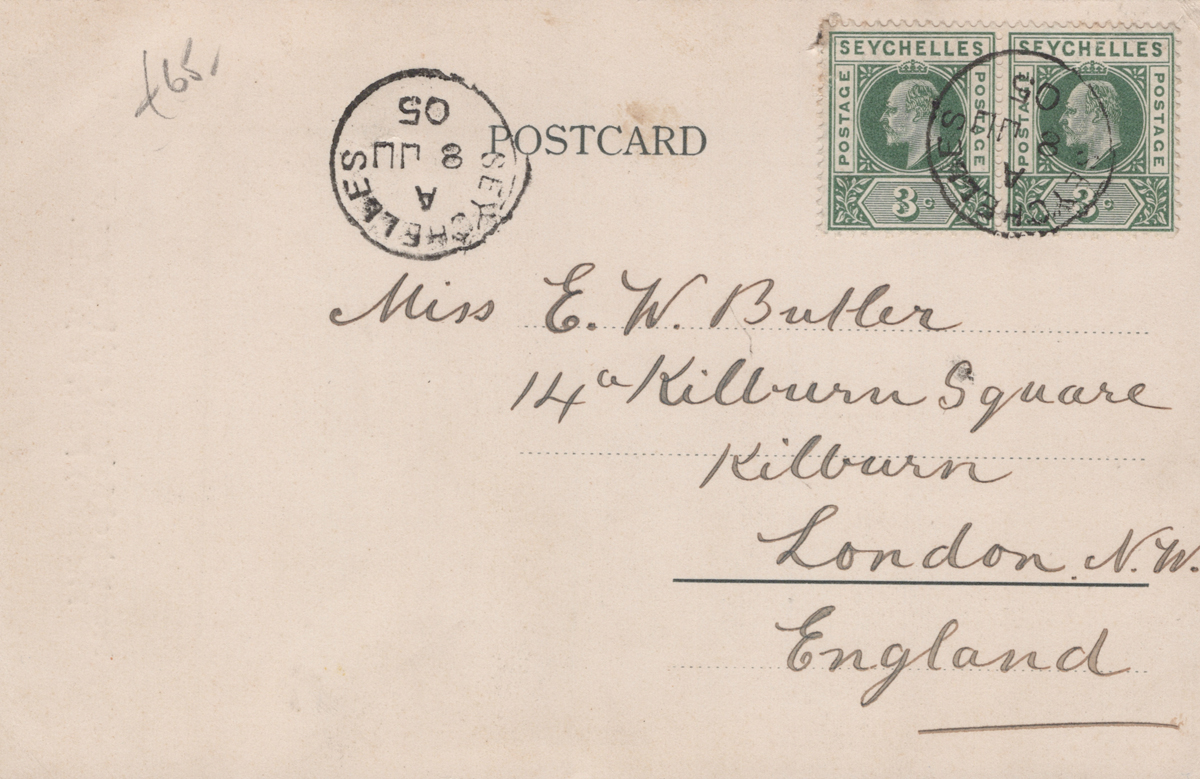 £65.
SEYCHELLES
A
8 JU
05
POSTCARD
SEYCHELLES
POSTAGE POSTAGE
3c
SEYCHELLES
POSTAGE POSTAGE
3c
SEYCHELLES
A
8 JU
05
Miss E. W. Butler
14a Kilburn Square
Kilburn
London. N.W.
England